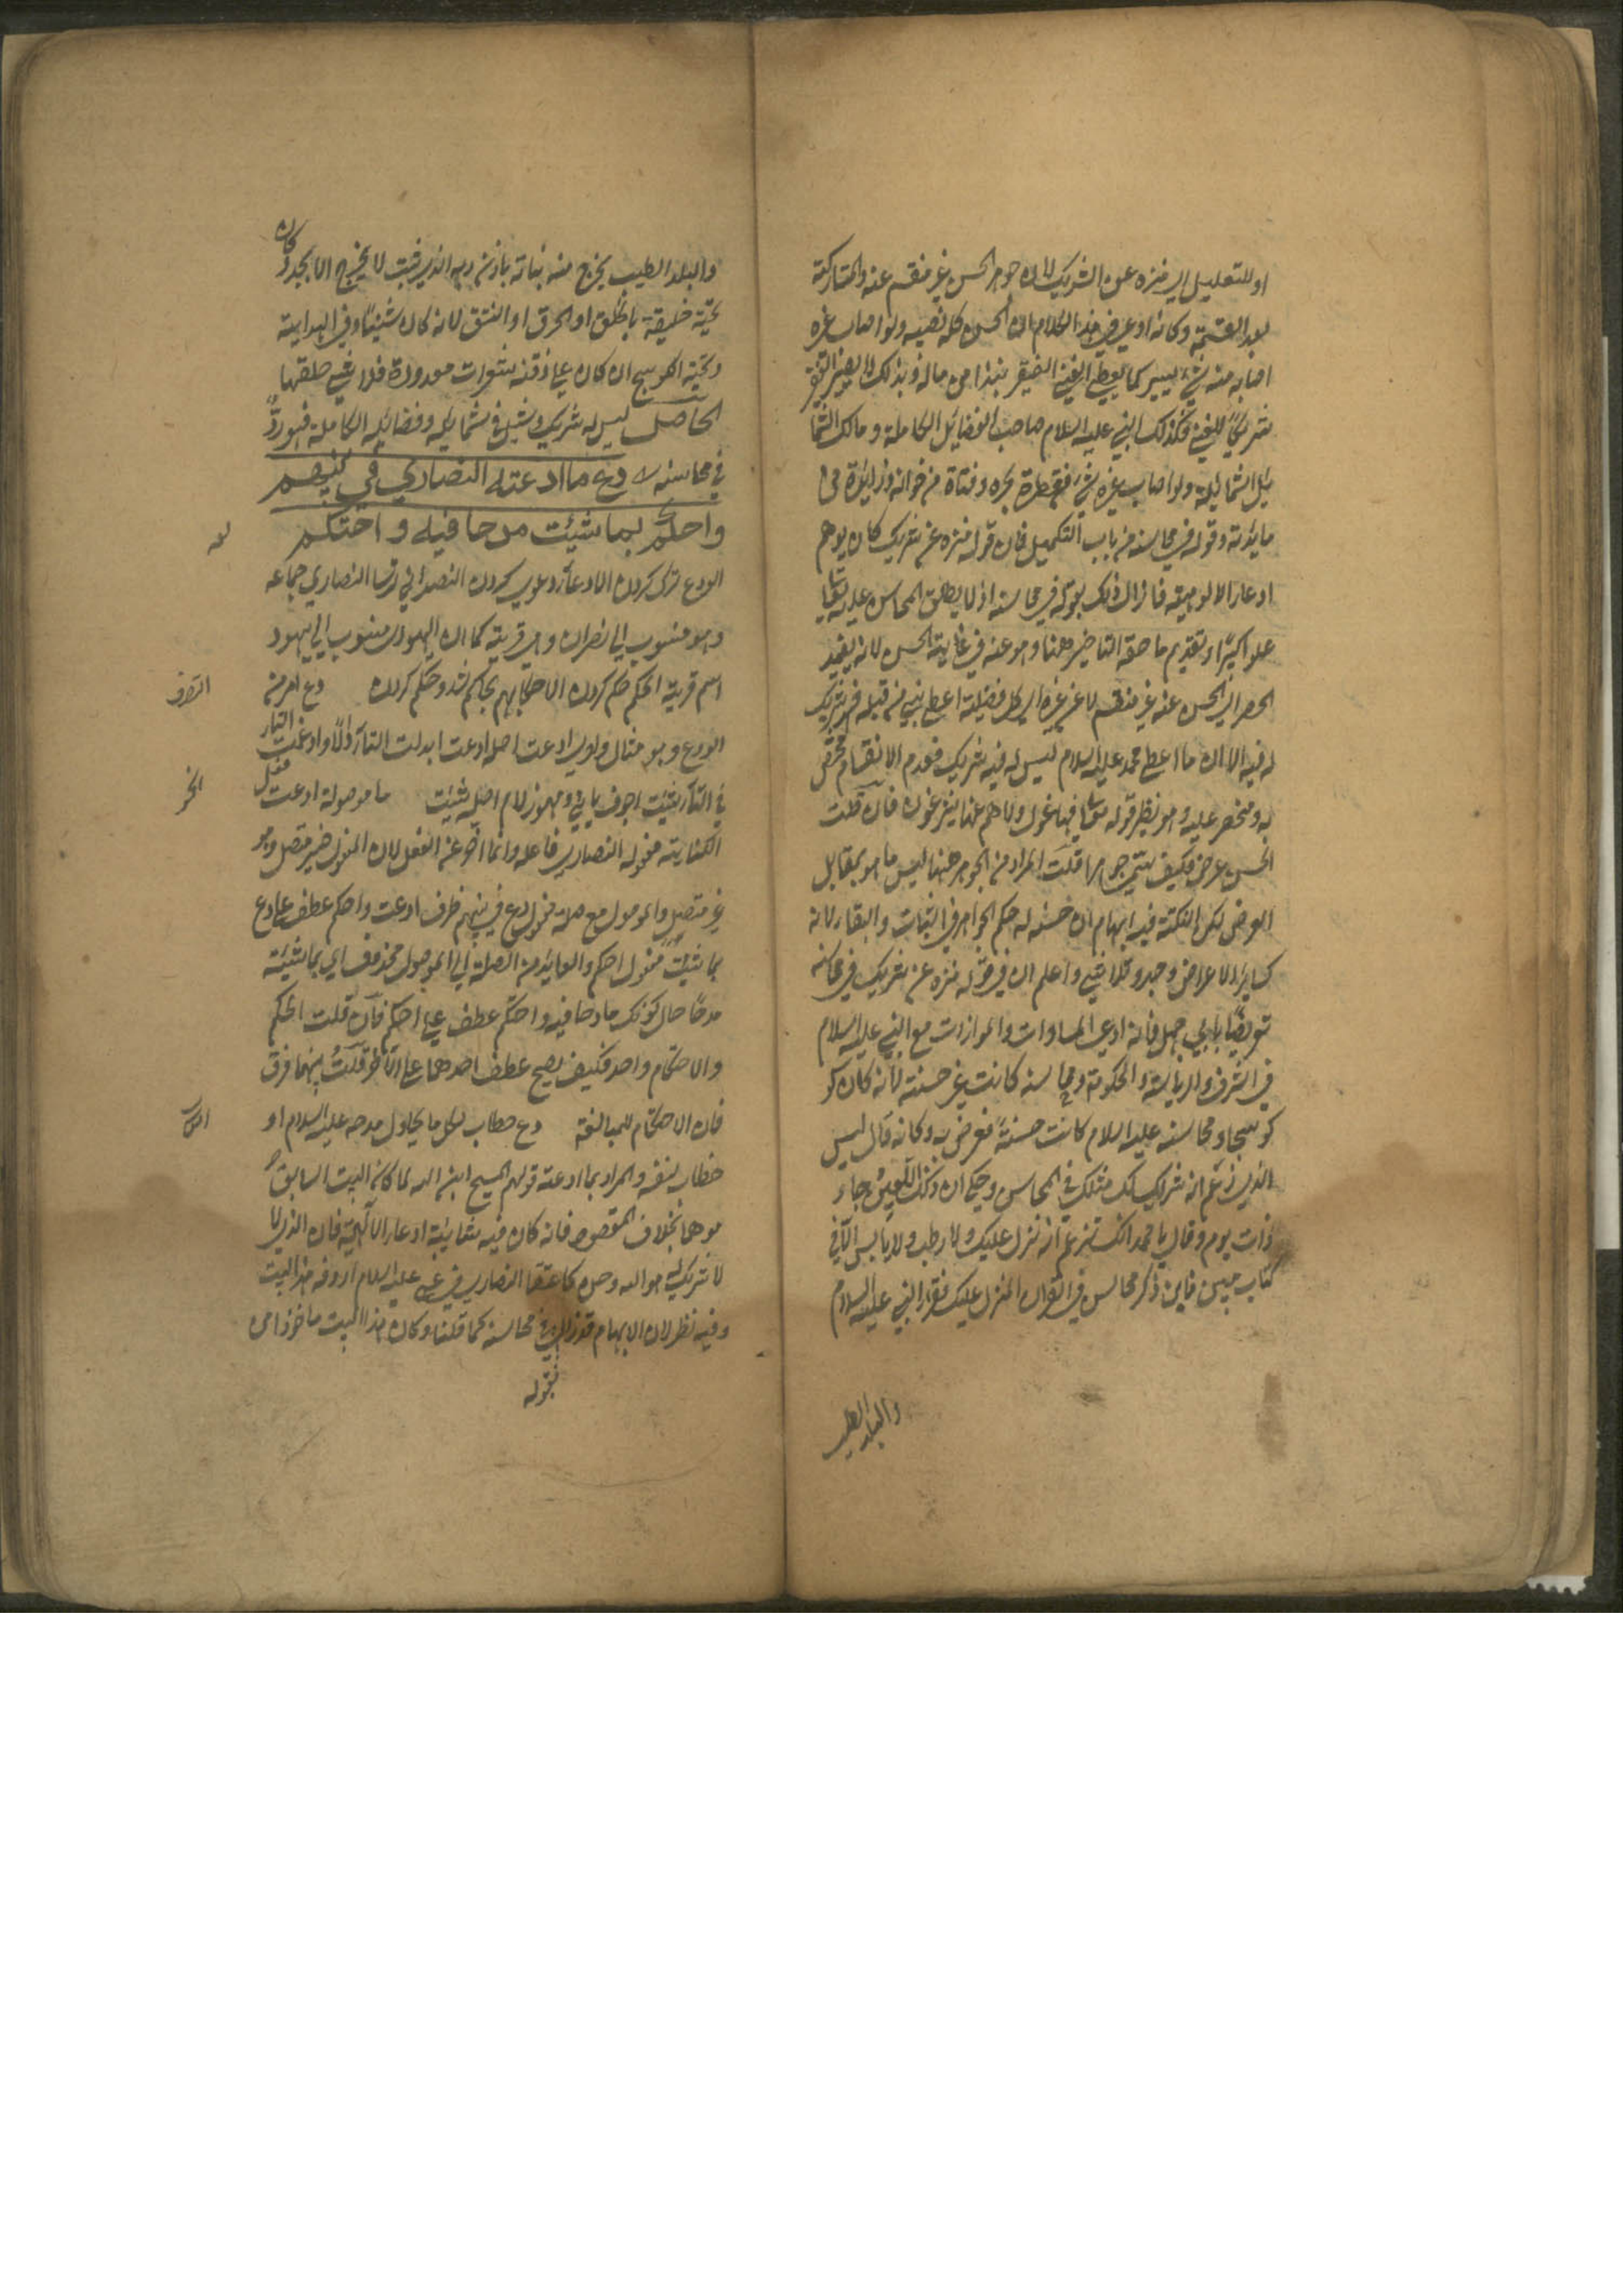 او للتعليل اي منزه عن الشريك لان جوهر الحسن غير منقسم عنه والمشاركة
بعد القسمة وكانه ادعى في هذا الكلام ان الحسن كله نصيبه ولو اصاب غيره
اصابه منه شيء يسير كما يعطي الغني الفقير نبذا من ماله وبذلك لا يصير الفقير
شريكا للغني وكذلك النبي عليه السلام صاحب الفضائل الكاملة ومالك الشما
ئل الشمايلة ولو اصاب غيره شيء فقطرة بحره وفتاة من خوانه وزايدة من
مائدته وقوله في محاسنه من باب التكميل فان قوله منزه عن شريك كان يوهم
ادعاء الالوهية فازال ذلك بقوله في محاسنه اذ لا يطلق المحاسن عليه تعالى
علوا كبيرا وتقديم ما حقه التاخير ههنا وهو عنه في غاية الحسن لانه يفيد
الحصر اي الحسن عنه غير منقسم لا عن غيره اي كل فضيلة اعطي نبي من قبله فهو شريك
له فيه الا ان ما اعطي محمد عليه السلام ليس له فيه شريك فعدم الانقسام مختص
به ومنحصر عليه وهو نظير قوله تعالى لا فيها غول ولا هم عنها ينزفون فان قلت
الحسن عرض فكيف يسمى جوهرا قلت المراد من الجوهر ههنا ليس ما هو بمقابل
العرض لكن النكتة فيه ابهام ان حسنه له حكم الجواهر في الثبات والبقاء لانه
كساير الاعراض وجد وتلاشى واعلم ان في قوله منزه عن شريك في محاسنه
تعريضا بابي جهل فانه ادعى المساوات والموازات مع النبي عليه السلام
في الشرف والرياسة والحكومة ومحاسنه كانت غير حسنة لانه كان كو
كوسجا ومحاسنه عليه السلام كانت حسنة فعرض به وكانه قال ليس
الذي زعم انه شريك لك مثلك في المحاسن وحكي ان ذلك اللعين جاء
ذات يوم وقال يا محمد انك تزعم انه نزل عليك ولا رطب ولا يابس الا في
كتاب مبين فاين ذكر محاسن في القران المنزل عليك فقرا النبي عليه السلام
والبلد الطيب
والبلد الطيب يخرج منه نباته باذن ربه والذي خبث لا يخرج الا نكدا وكان
لحيته خليقة بالحلق او الحرق او النتق لانه كان شنيئا وفي الهداية
ولحية الكوسج ان كان على ذقنه شعرات معدودة فلا شيء حلقها
الحاصل ليس له شريك ومثيل في شمايله وفضائله الكاملة فهو رد
في محاسنه دع ما ادعته النصاري في نبيهم
واحكم بما شيئت مدحا فيه واحتكم
الودع ترك كردن الادعاء دعوى كردن النصراني ترسا النصارى جماعه
وهو منسوب الى نصران وهي قرية كما ان اليهودي منسوب الى يهود
اسم قرية الحكم حكم كردن الاحتكام بحاكم شد وحكم كردن دع امر من
التصرف
الودع وهو مثال واوي ادعت اصله ادتعت ابدلت التاء دالا وادغمت التاء
في التاء شيئت اجوف يايي ومهموز لام اصله شيئت ما موصولة ادعت فعل
النحو
الكناية مفعوله النصارى فاعله وانما اخر عن الفعل لان المفعول ضمير متصل وهو
غير متصل والموصول مع صلة مفعول دع في نبيهم ظرف ادعت واحكم عطف على دع
بما شيئت مفعول احكم والعايد من الصلة الى الموصول محذوف اي بما شيئته
مدحا حال كونك مادحا فيه واحتكم عطف على احكم فان قلت الحكم
والاحتكام واحد فكيف يصح عطف احدهما على الاخر قلت بينهما فرق
فان الاحتكام للمبالغة دع خطاب لكل ما يحاول مدحه عليه السلام او
خطاب لنفسه والمراد بما ادعته قولهم المسيح ابن الله لما كان البيت السابق
موهما بخلاف المقصود فانه كان فيه شايبة ادعاء الالهية فان الذي لا
لا شريك له هو الله وحده كما اعتقد النصارى في عيسى عليه السلام اردفه هذا البيت
وفيه نظر لان الابهام قد زال في محاسنه كما قلنا وكان هذا البيت ماخوذا من
بقوله